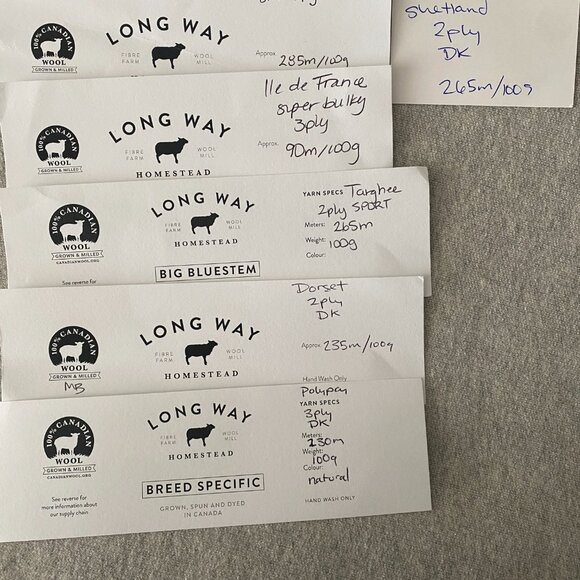 shetland
2ply
DK
265m/100g
100% CANADIAN
WOOL
GROWN & MILLED
LONG WAY
FIBRE FARM
WOOL MILL
Approx. 285m/100g
100% CANADIAN
WOOL
GROWN & MILLED
LONG WAY
FIBRE FARM
WOOL MILL
HOMESTEAD
Ile de France
super bulky
3ply
Approx. 90m/100g
100% CANADIAN
WOOL
GROWN & MILLED
CANADIANWOOL.ORG
See reverse for
LONG WAY
FIBRE FARM
WOOL MILL
HOMESTEAD
BIG BLUESTEM
YARN SPECS Targhee
2ply SPORT
Meters: 265m
Weight: 100g
Colour:
100% CANADIAN
WOOL
GROWN & MILLED
MB
LONG WAY
FIBRE FARM
WOOL MILL
HOMESTEAD
Dorset
2ply
DK
Approx. 235m/100g
Hand Wash Only
100% CANADIAN
WOOL
GROWN & MILLED
CANADIANWOOL.ORG
See reverse for
more information about
our supply chain
LONG WAY
FIBRE FARM
WOOL MILL
HOMESTEAD
BREED SPECIFIC
GROWN, SPUN AND DYED
IN CANADA
Polypay
YARN SPECS
3ply
DK
Meters:
230m
Weight:
100g
Colour:
natural
HAND WASH ONLY